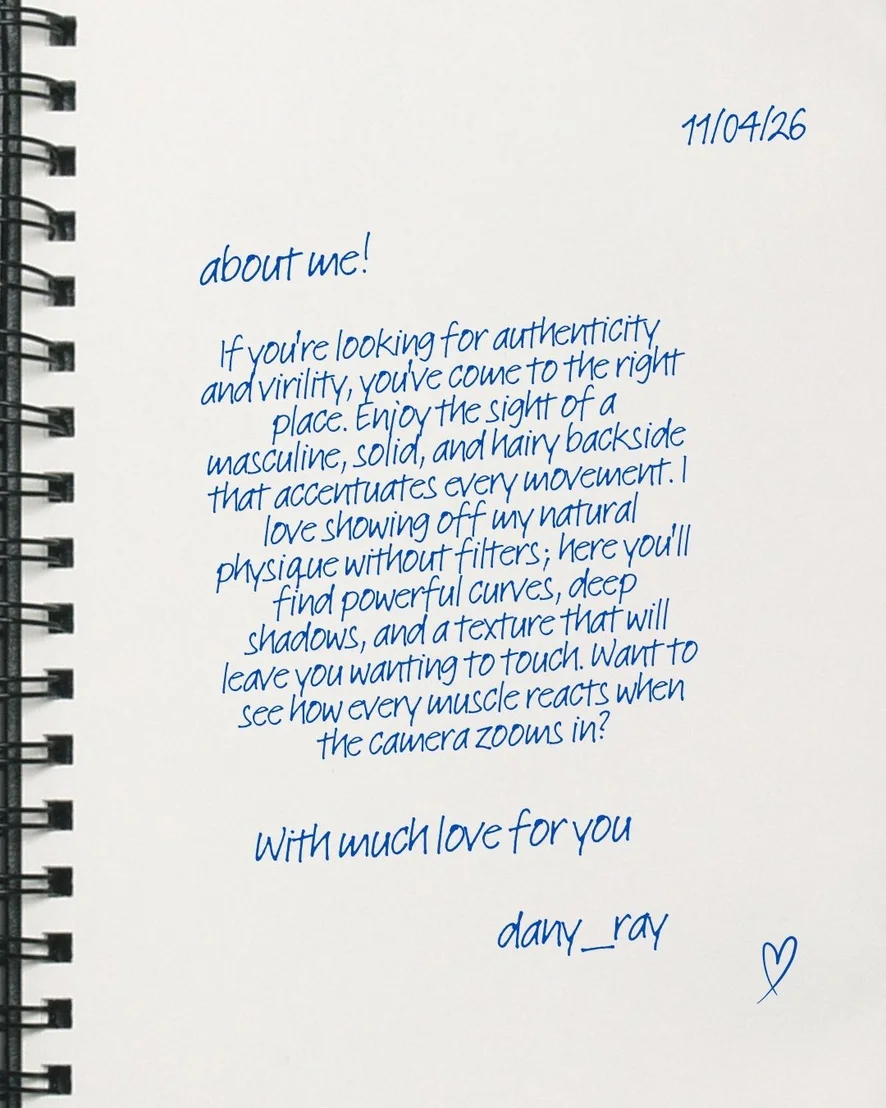 11/04/26
about me!
If you're looking for authenticity
and virility, you've come to the right
place. Enjoy the sight of a
masculine, solid, and hairy backside
that accentuates every movement. I
love showing off my natural
physique without filters; here you'll
find powerful curves, deep
shadows, and a texture that will
leave you wanting to touch. Want to
see how every muscle reacts when
the camera zooms in?
With much love for you
dany_ray